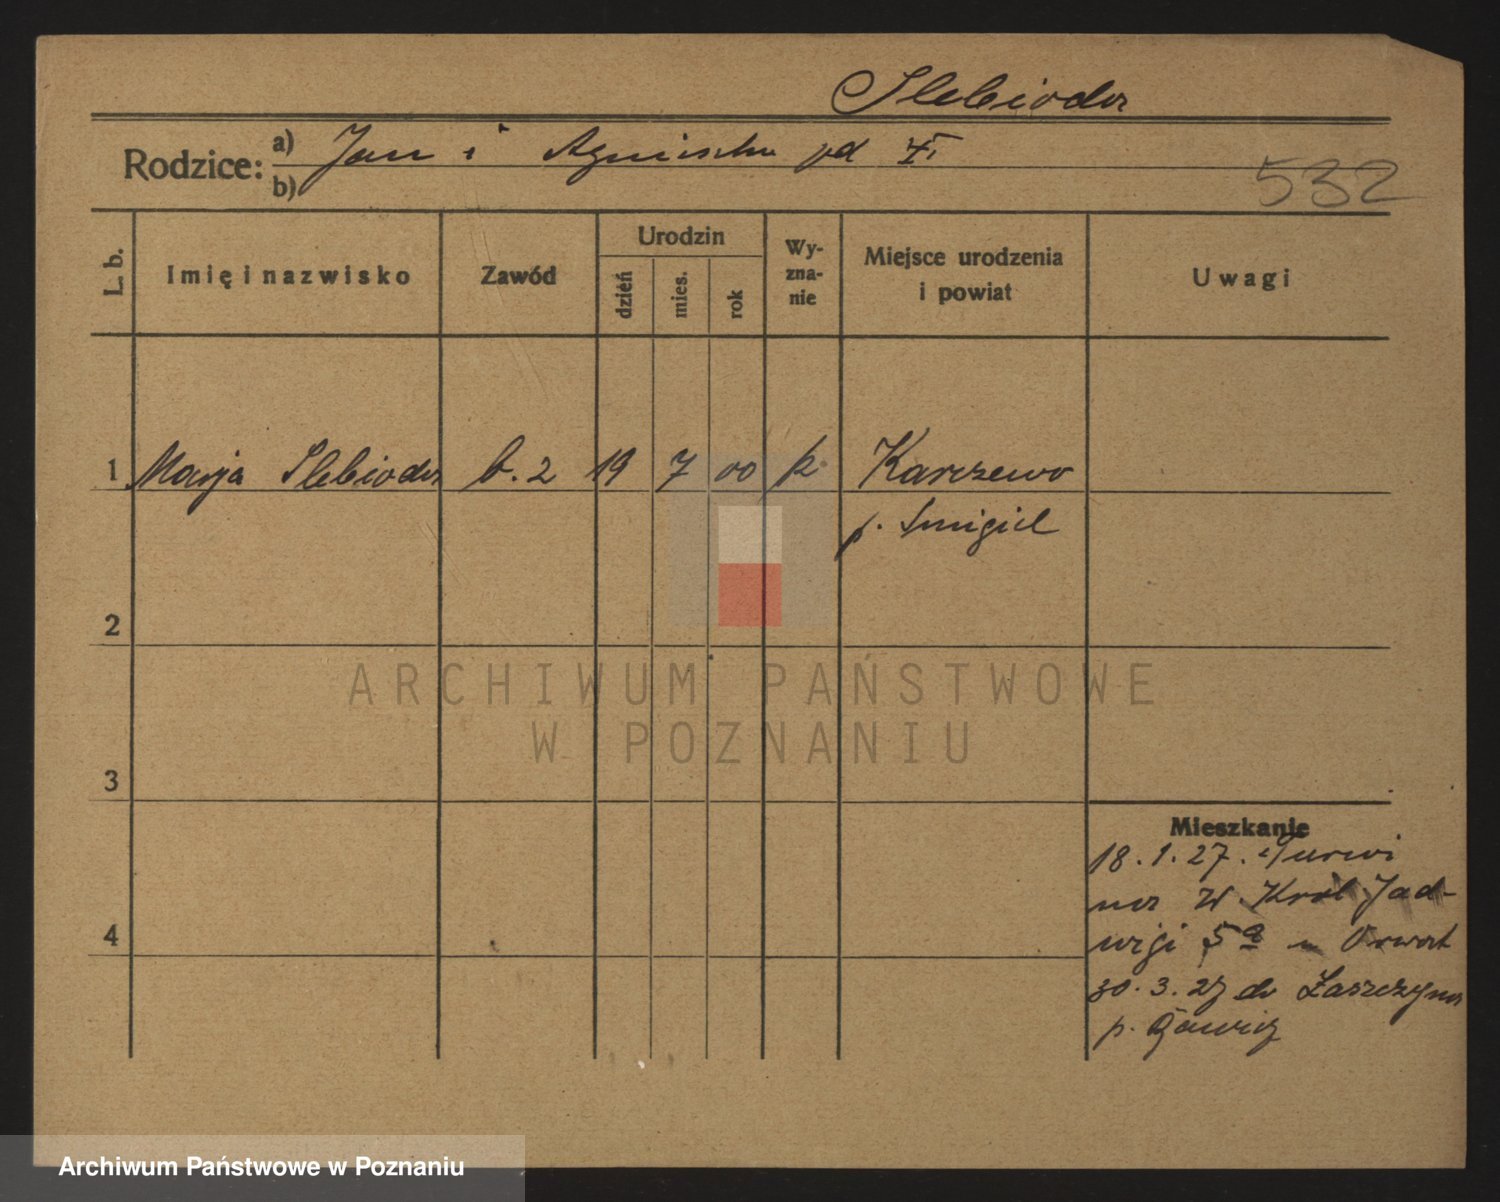 Slebioda
Rodzice:
a) Jan i Agnieszka
b)
532
L. b.
Imię i nazwisko
Zawód
Urodzin
dzień
mies.
rok
Wy-
zna-
nie
Miejsce urodzenia
i powiat
Uwagi
1 Marja Slebioda b. 2 19 7 00 k. Karczewo
p. Smigiel
2
3
4
Mieszkanie
18.1.27.
na Król. Jad-
wigi 5a
30.3.27 do Łaszczyna
p.
ARCHIWUM PAŃSTWOWE
W POZNANIU
Archiwum Państwowe w Poznaniu